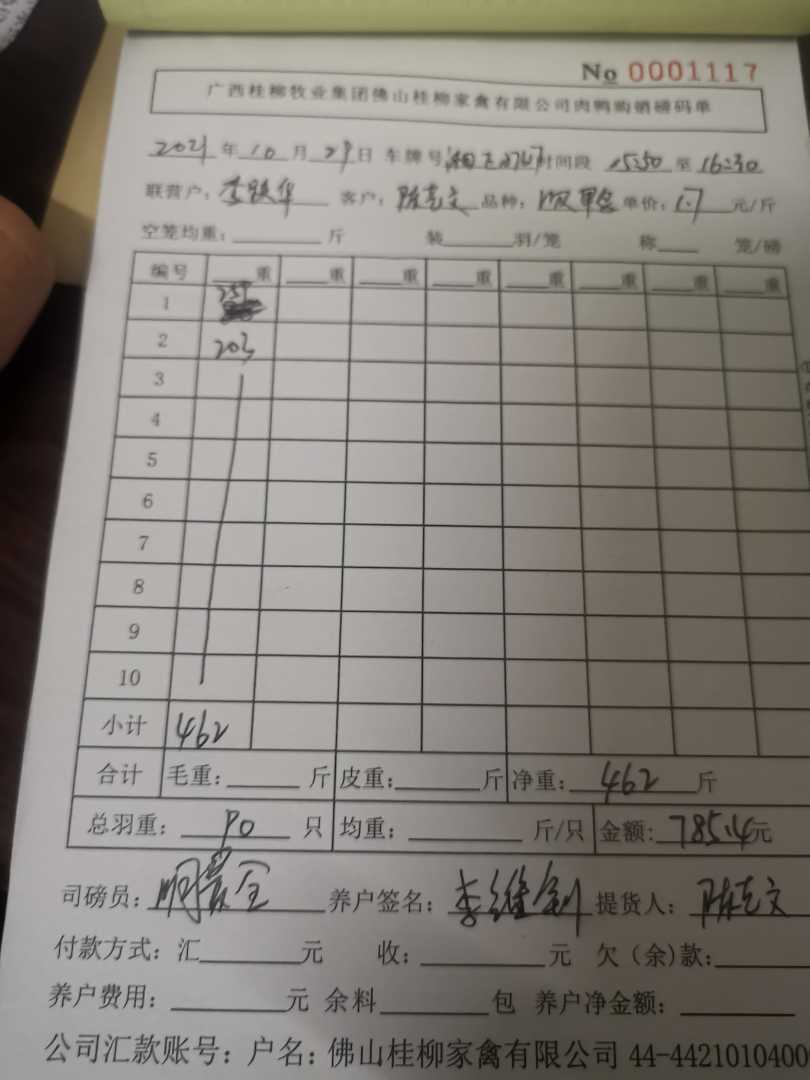 No 0001117
广西桂柳牧业集团佛山桂柳家禽有限公司肉鸭购销磅码单
2021年10月29日 车牌号 时间段 15:50至16:30
联营户: 李跃华 客户: 陈克文 品种: 单价: 1.7元/斤
空笼均重: 斤 装 羽/笼 称 笼/磅
编号 重 重 重 重 重 重 重 重
1 259
2 203
3
4
5
6
7
8
9
10
小计 462
合计 毛重: 斤 皮重: 斤 净重: 462 斤
总羽重: 90 只 均重: 斤/只 金额: 785.4元
司磅员: 养户签名: 李维剑 提货人: 陈克文
付款方式: 汇 元 收: 元 欠(余)款:
养户费用: 元 余料 包 养户净金额:
公司汇款账号: 户名: 佛山桂柳家禽有限公司 44-4421010400